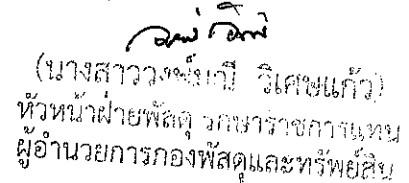 (นางสาววงษ์มณี วิเศษแก้ว)
หัวหน้าฝ่ายพัสดุ รักษาราชการแทน
ผู้อำนวยการกองพัสดุและทรัพย์สิน